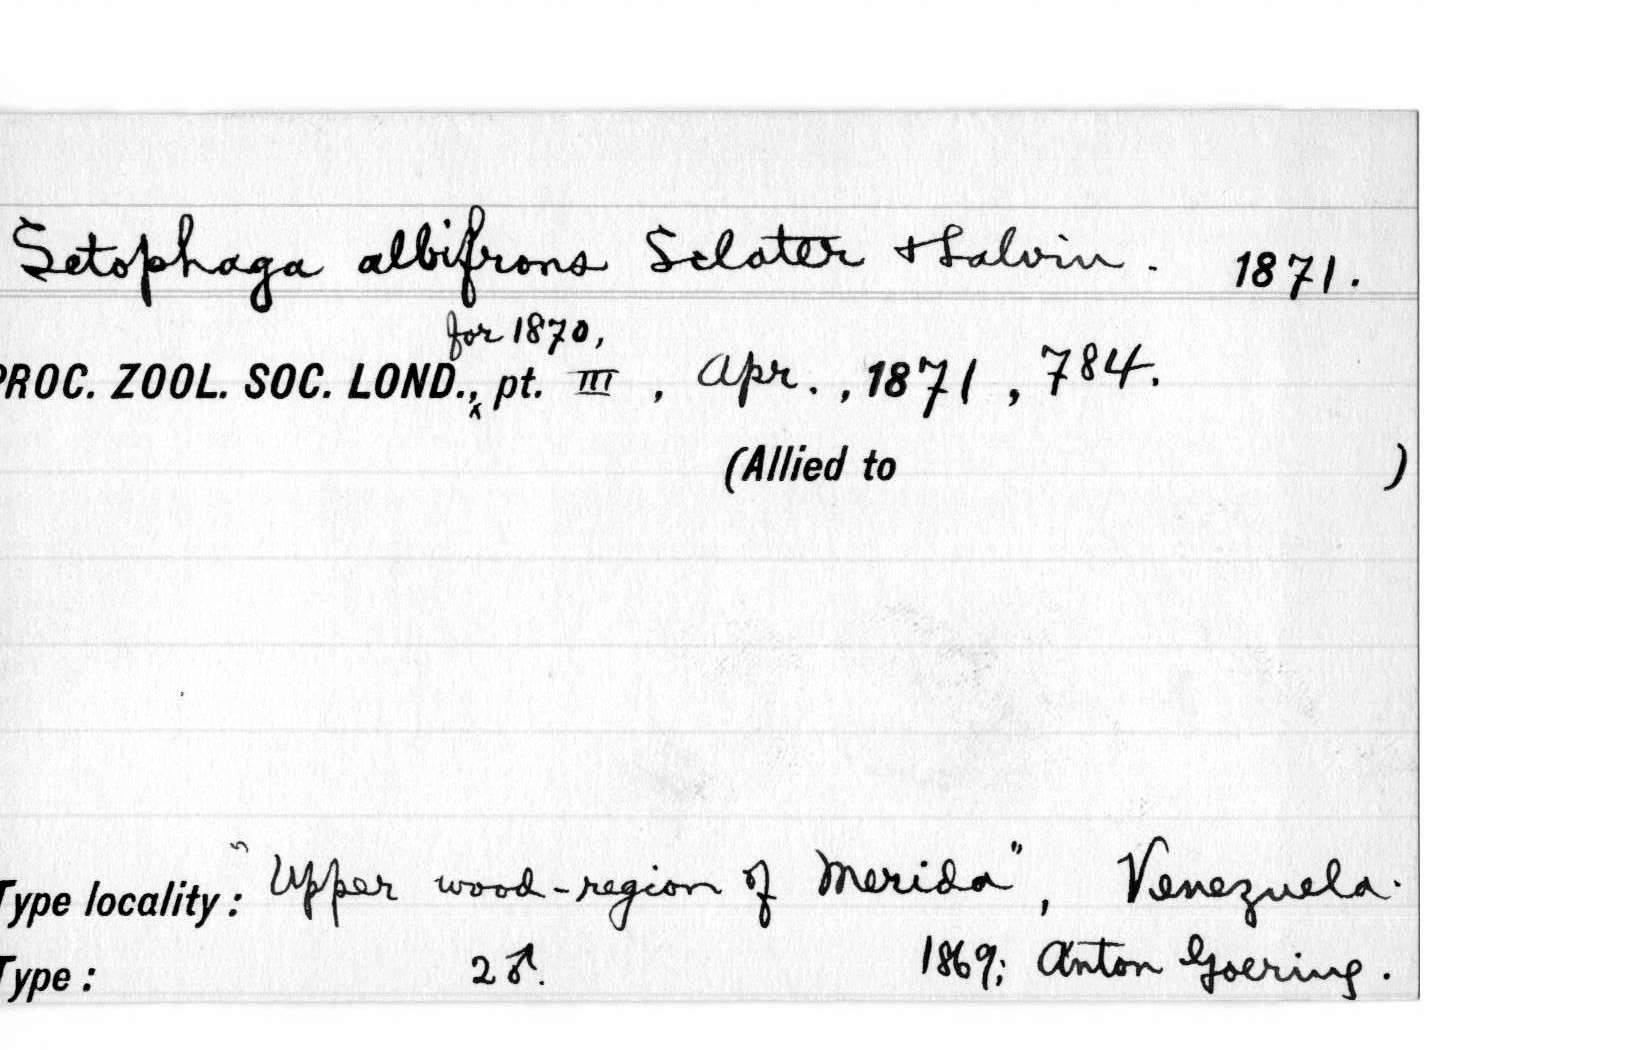 Setophaga albifrons Sclater & Salvin. 1871.
for 1870,
PROC. ZOOL. SOC. LOND., pt. III, Apr., 1871, 784.
(Allied to )
Type locality: "Upper wood-region of Merida", Venezuela.
Type: 2♂. 1869; Anton Goering.